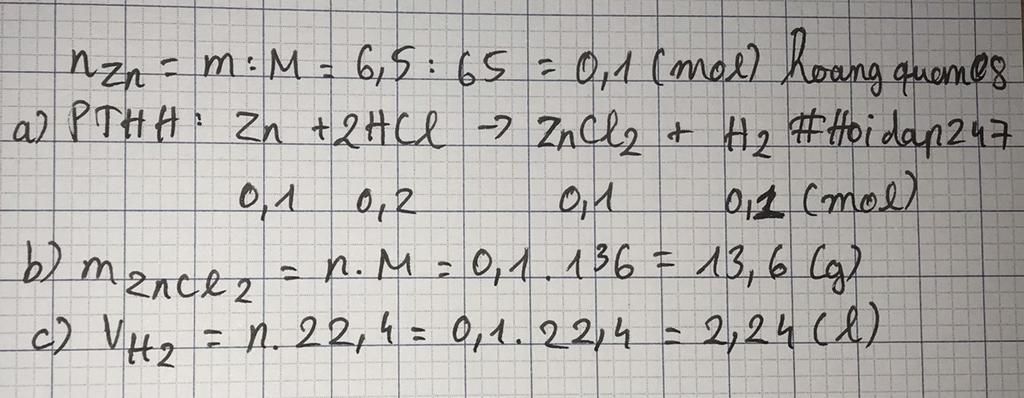 nZn = m : M = 6,5 : 65 = 0,1 (mol) Hoangquem08
a) PTHH: Zn + 2HCl → ZnCl2 + H2 #Hoidap247
0,1 0,2 0,1 0,1 (mol)
b) mZnCl2 = n.M = 0,1.136 = 13,6 (g)
c) VH2 = n.22,4 = 0,1.22,4 = 2,24 (l)